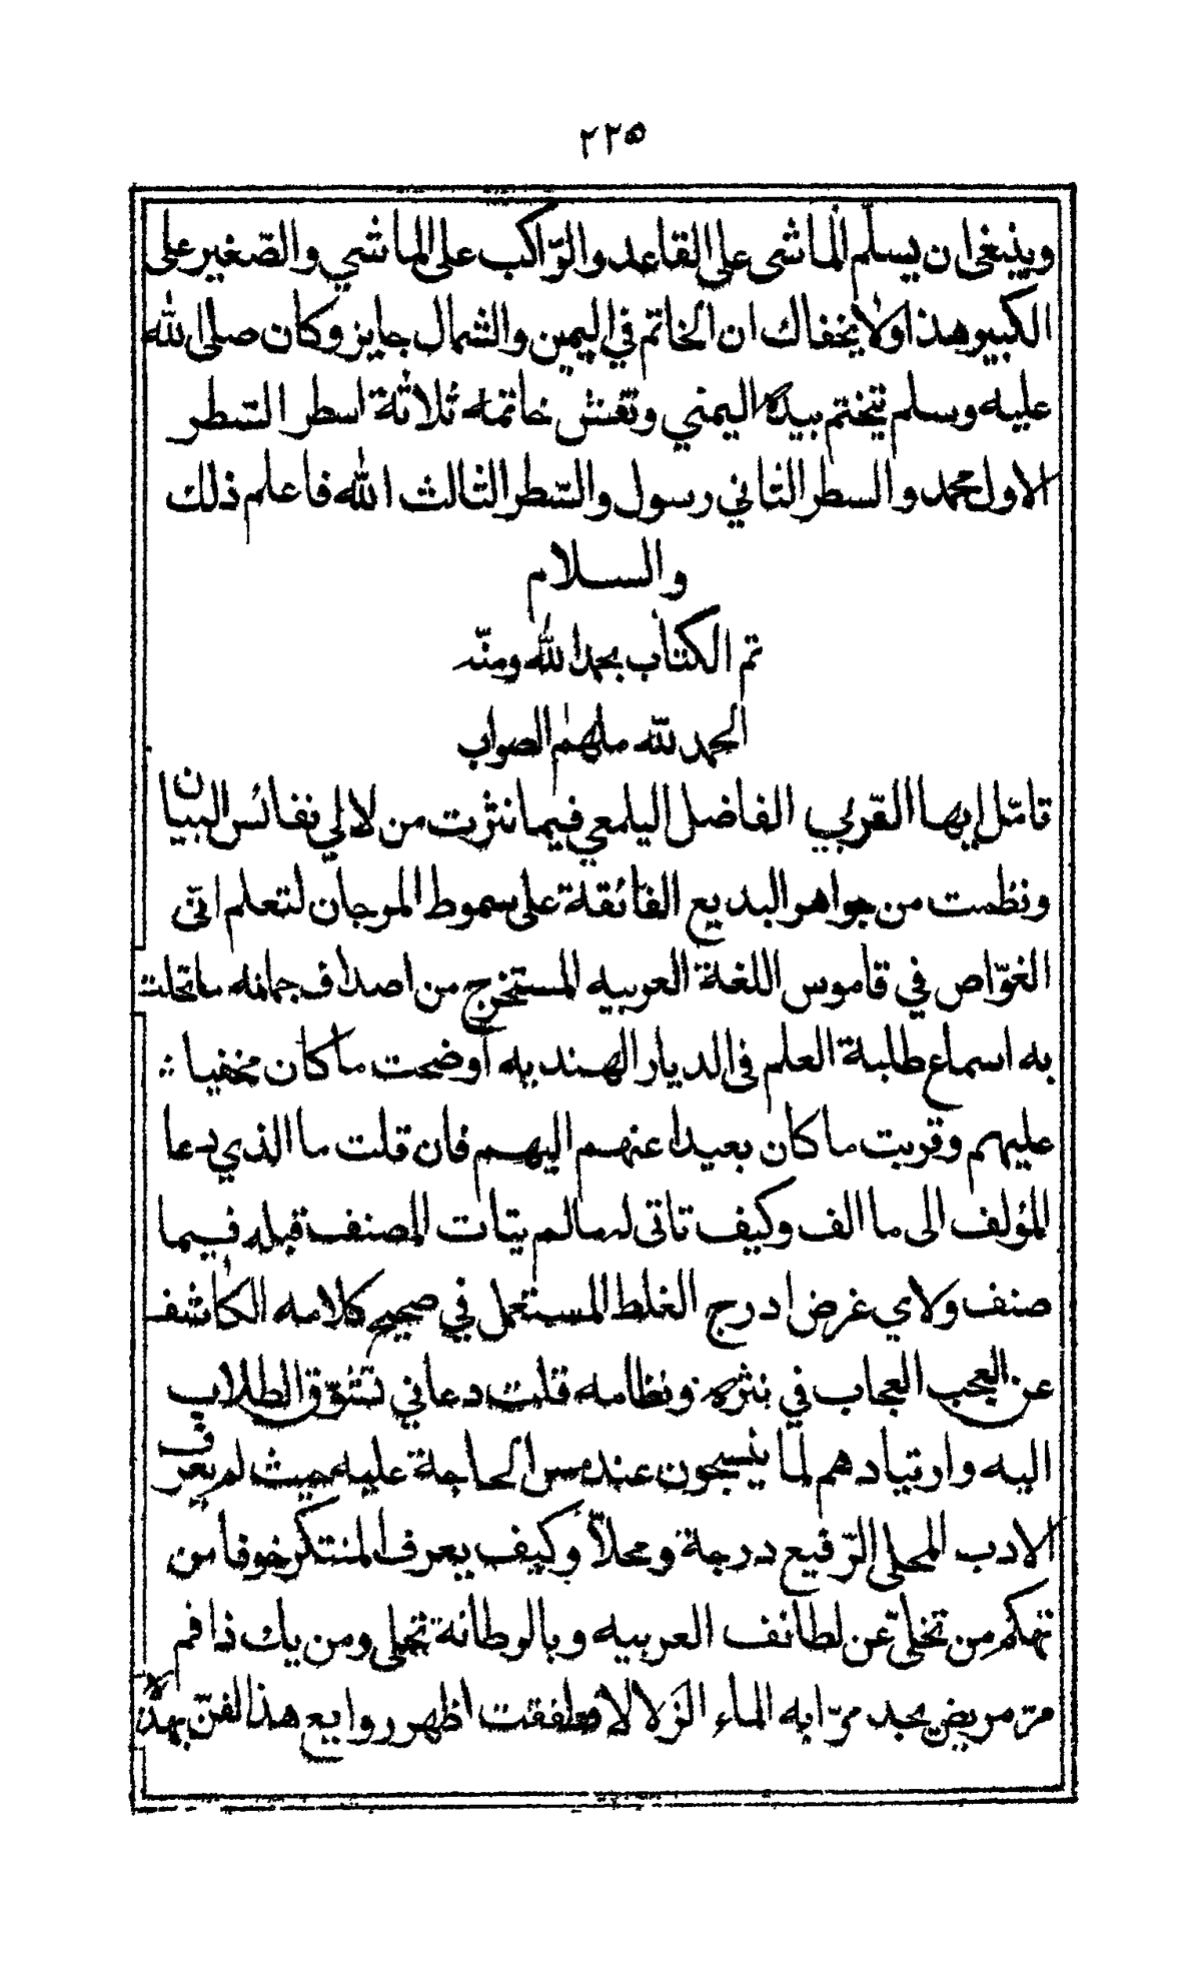 ٢٢٥
وينبغي ان يسلّم الماشى على القاعد والرّاكب على الماشي والصّغير على
الكبير هذا ولا يخفاك ان الخاتم في اليمين والشمال جايز وكان صلى الله
عليه وسلم يتختم بيده اليمني ونقش خاتمه ثلاثة اسطر السّطر
الاول محمد والسطر الثّاني رسول والسّطر الثالث الله فاعلم ذلك
والسلام
تم الكتاب بحمد الله ومنّه
الحمد لله ملهم الصواب
تامّل ايها القربي الفاضل اليلمعي فيما نثرت من لالي نفائس البيان
ونظمت من جواهر البديع الفائقة على سموط المرجان لتعلم انّى
الغوّاص في قاموس اللغة العربيه المستخرج من اصداف جمانه ما تحلت
به اسماع طلبة العلم فى الديار الهنديه أوضحت ما كان مخفيا
عليهم وقربت ما كان بعيدا عنهم اليهم فان قلت ما الذي دعا
المؤلف الى ما الف وكيف تاتى له ما لم يتات المصنف قبله فيما
صنف ولاي غرض ادرج الغلط المستعمل في صحيح كلامه الكاشف
عن العجب العجاب في نثره ونظامه قلت دعاني تشوّق الطلاب
اليه وارتيادهم لما ينسجون عند مس الحاجة عليه حيث لم يعرف
الادب المحلى الرّفيع درجة ومحلاّ وكيف يعرف المنتكر خوفا من
تهكم من تخلّى عن لطائف العربيه وبالرطانة تحلى ومن يك ذا فم
مرّ مريض يجد مرّا به الماء الزلالا فطفقت اظهر روايع هذا الفنّ بهذا